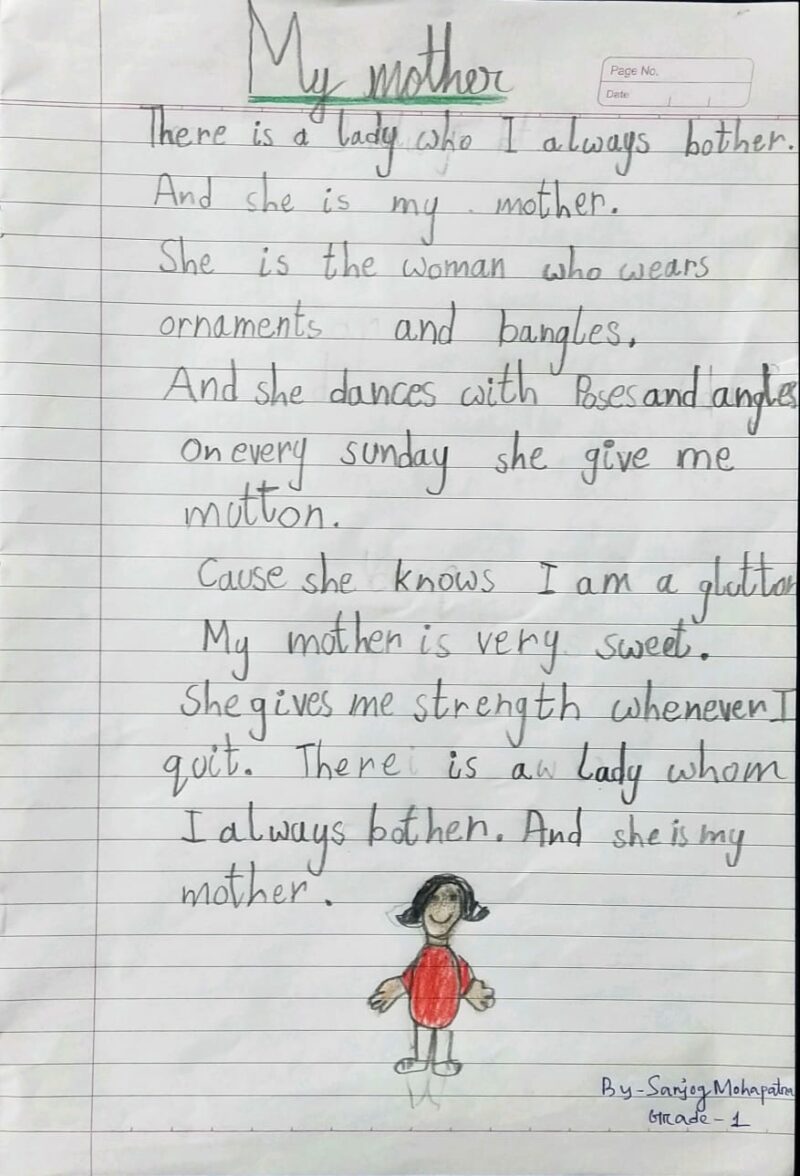 My mother
Page No.
Date
There is a lady who I always bother.
And she is my mother.
She is the woman who wears
ornaments and bangles.
And she dances with Poses and angles
On every sunday she give me
mutton.
Cause she knows I am a glutton
My mother is very sweet.
She gives me strength whenever I
quit. There is a lady whom
I always bother. And she is my
mother.
By-Sanjog Mohapatra
Grade-1